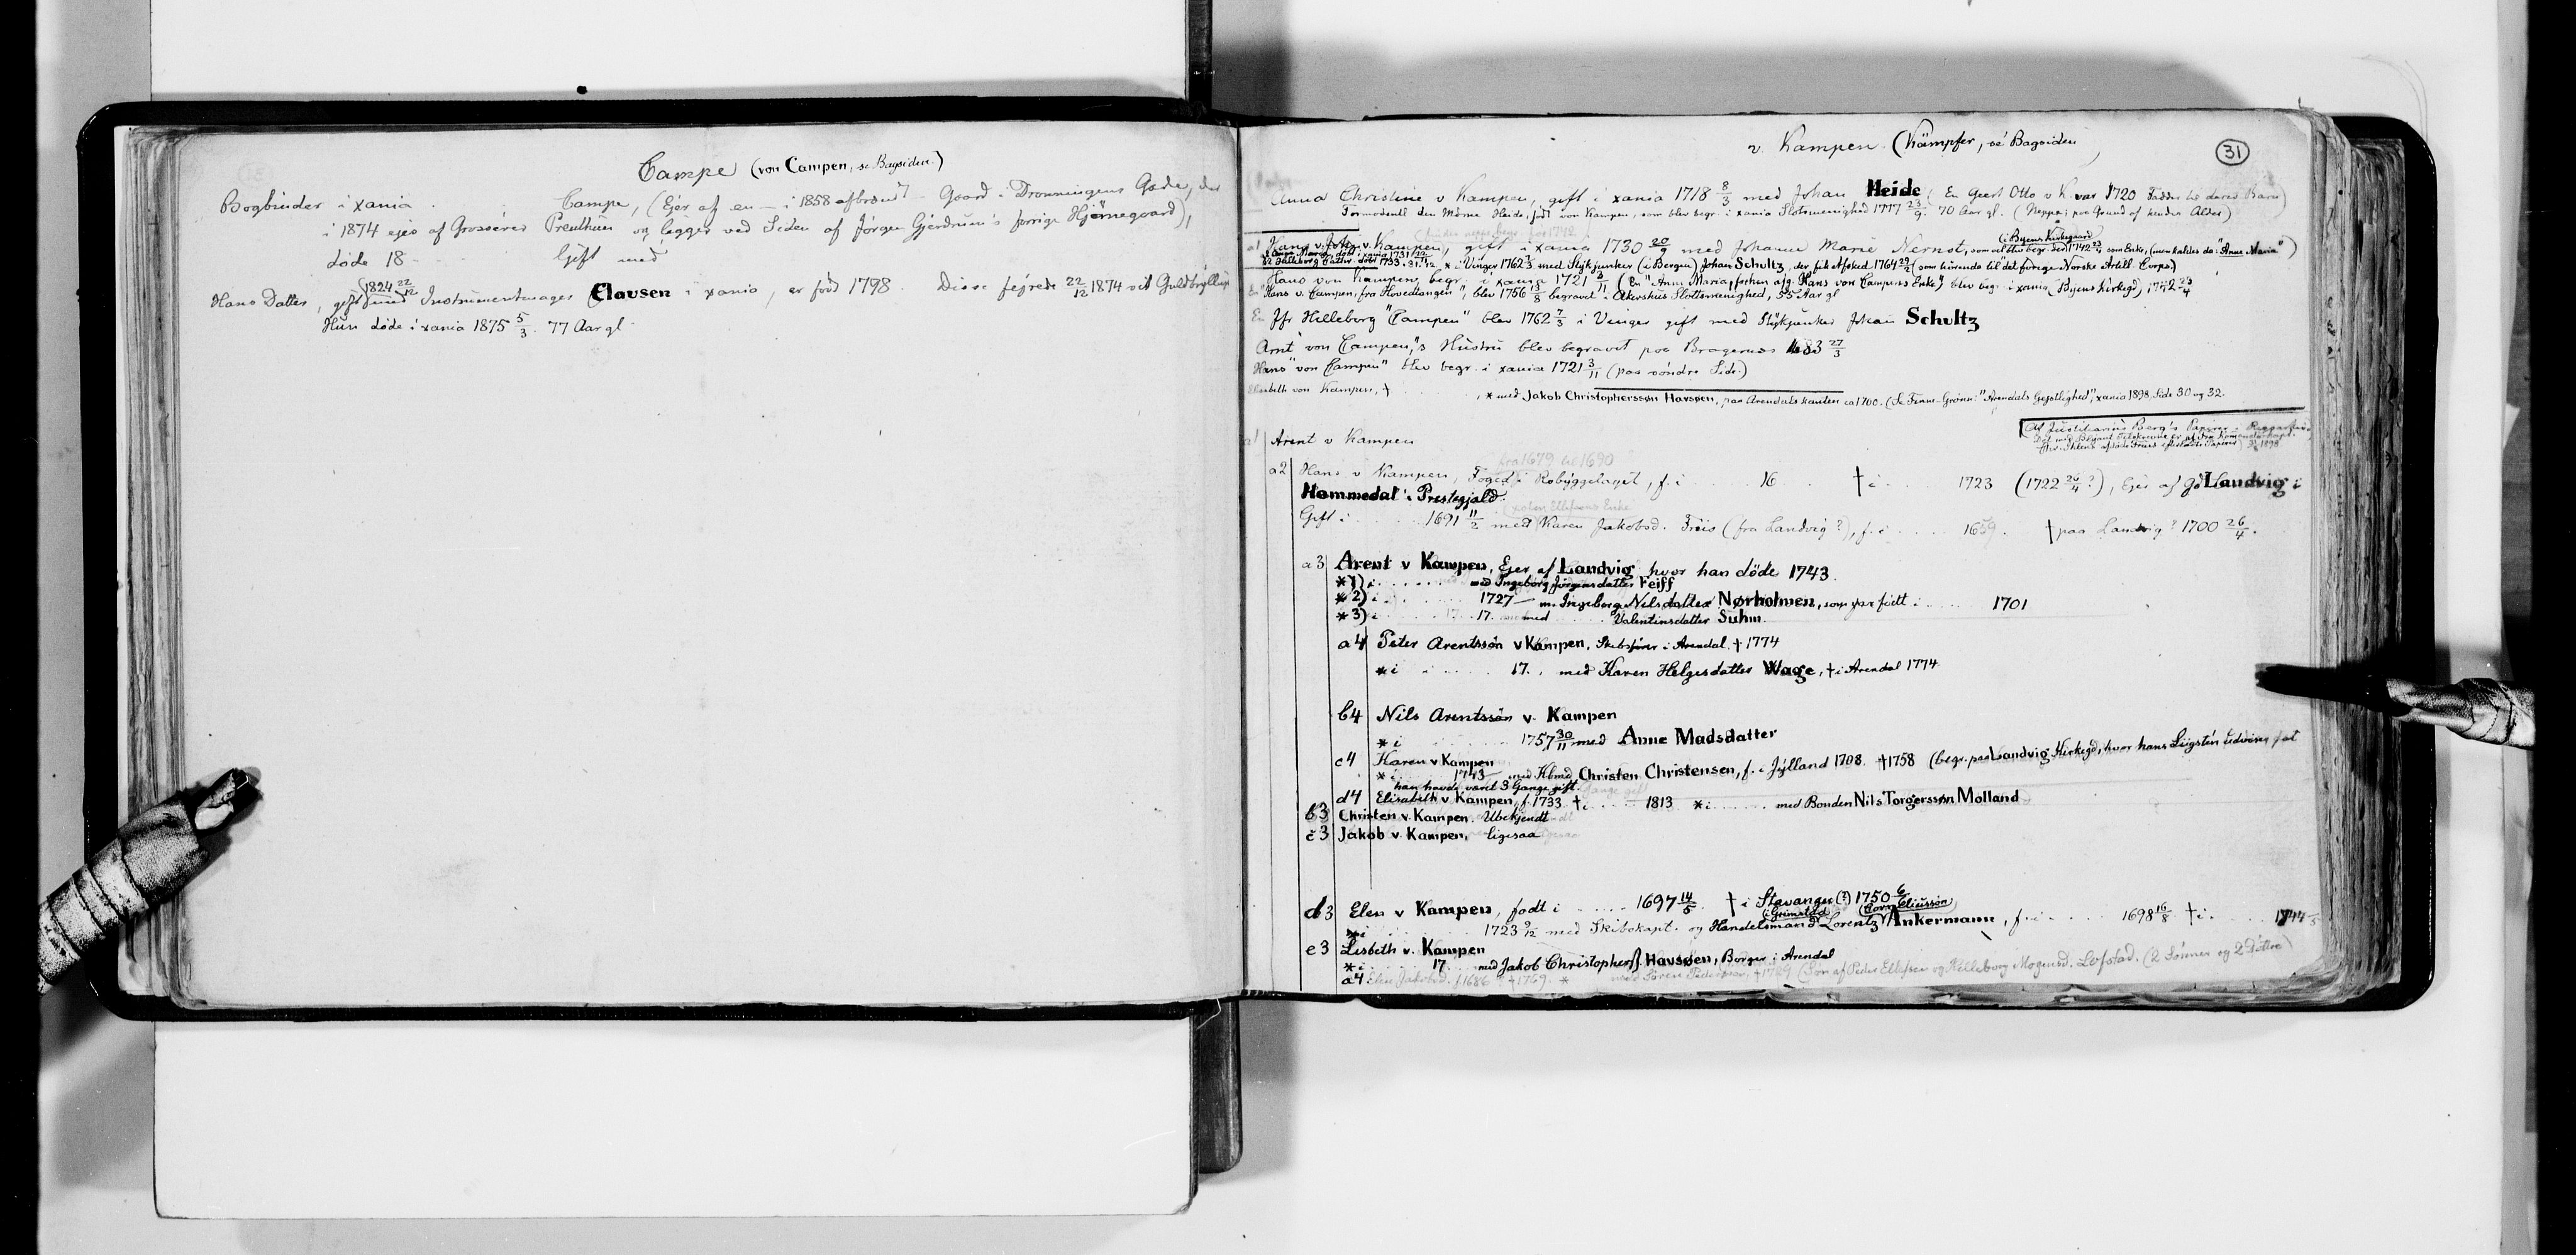 Campe (von Campen, se Bagsiden.)
Bogbinder i xania . Campe, (Ejer af en — i 1858 afbrændt — Gaard i Dronningens Gade, der
i 1874 ejes af Grosserer Preuthun og ligger ved Siden af Jørgen Gjerdrum's forrige Hjørnegaard),
døde 18 Gift med
Hans Datter, gift 1824 22/12 med Instrumentmager Clausen i xania, er født 1798. Disse fejrede 22/12 1874 sit Guldbryllup
Hun døde i xania 1875 5/3. 77 Aar gl.
v. Kampen (Kämpfer, se Bagsiden)
31
Anna Christine v Kampen, gift i xania 1718 8/3 med Johan Heide (En Geert Otto v K. var 1720 Fadder til deres Barn)
Formodentl. den Mdme Heide, født von Kampen, som blev begr. i xania Slotsmenighed 1777 23/9. 70 Aar gl. (Neppe; paa Grund af hendes Alder)
a1 Hans v. Kampen, gift i xania 1730 20/9 med Johanne Marie Nernst, som vel blev begr. (i Byens Kirkegaard) 1742 23/4 som Enke, (men kaldes da: "Anne Maria")
b2 Helleborg Cathr. døbt 1733 * i Vinger 1762 7/3 med Stykjunker (i Bergen) Johan Schultz, der fik Afsked 1764 (som hørende til det forrige Norske Artill. Corps.)
Hans von Kampen, begr. i xania 1721 3/11 (En "Anne Maria, forhen afg. Hans von Campens Enke") blev begr. i xania (Byens Kirkegd) 1742 23/4
En "Hans v. Campen, fra Hovedtangen", blev 1756 begravet i Akershus Slottsmenighed, 55 Aar gl
En Jfr Helleborg "Campen" blev 1762 7/3 i Vinger gift med Stykjunker Johan Schultz
Arnt "von Campen"s Hustru blev begravet paa Bragernæs 1683 27/3
Hans "von Campen" blev begr. i xania 1721 3/11 (paa søndre Side.)
Elisbeth von Kampen, † , * med Jakob Christopherssøn Havsøen, paa Arendalskanten ca 1700. (Se Finne-Grønn: "Arendals Gejstlighed", xania 1898. Side 30 og 32.
a1 Arent v Kampen
Af Justitiarius Berg's Papirer i
fra 1679 til 1690
a2 Hans v Kampen, Foged i Robyggelaget, f. i 16 † i 1723 (1722 26/4 ?), Ejer af Gd Landvig i
Hommedal's Præstegjæld.
Gift i 1691 11/2 med Karen Jakobsd. Friis (fra Landvig ?), f. i 1659. † paa Landvig? 1700 26/4.
a3 Arent v Kampen, Ejer af Landvig, hvor han døde 1743.
*1) i med Ingeborg Jörgensdatter Feiff
*2) i 1727 — m. Ingeborg Nilsdatter Nørholmen, som var født i 1701
*3) i 17 med Valentinsdatter Suhm.
a4 Peter Arentssøn v Kampen, Skibsfører i Arendal. † 1774
* i 17. . med Karen Helgesdatter Wage, † i Arendal 1774
b4 Nils Arentssøn v. Kampen
* i 1757 30/11 med Anne Madsdatter
c4 Karen v Kampen
* i 1743 med Kbmd Christen Christensen, f. i Jylland 1708. † 1758 (begr. paa Landvig Kirkegd, hvor hans Ligsten
han havde været 3 Gange gift.
d4 Elisabeth v Kampen, f. 1733. † i 1813 * i med Bonden Nils Torgerssøn Molland
b3 Christen v. Kampen. Ubekjendt
c3 Jakob v. Kampen, ligesaa
d3 Elen v Kampen, født i 1697 14/5. † i Stavanger (?) 1750 6/
* i 1723 9/12 med Skibskapt. og Handelsmand (i Grimstad) Lorentz (Corneliussøn) Ankermann, f. i 1698 16/8 † i 1744
e3 Lisbeth v. Kampen
* i 17 med Jakob Christopherss. Havsøen, Borger i Arendal
a4 Elen Jakobsd. f. 1686 † 1769. * med Søren Pedersen, † 1729 (Søn af Peder Ellefsen og Helleborg Mogensd. Lofstad. (2 Sønner og 2 Døttre)